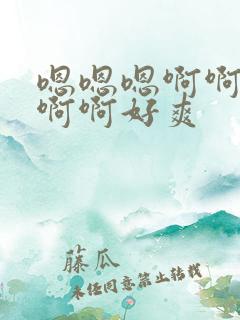 嗯嗯嗯啊啊
啊啊好爽
藤瓜
未经同意禁止转载